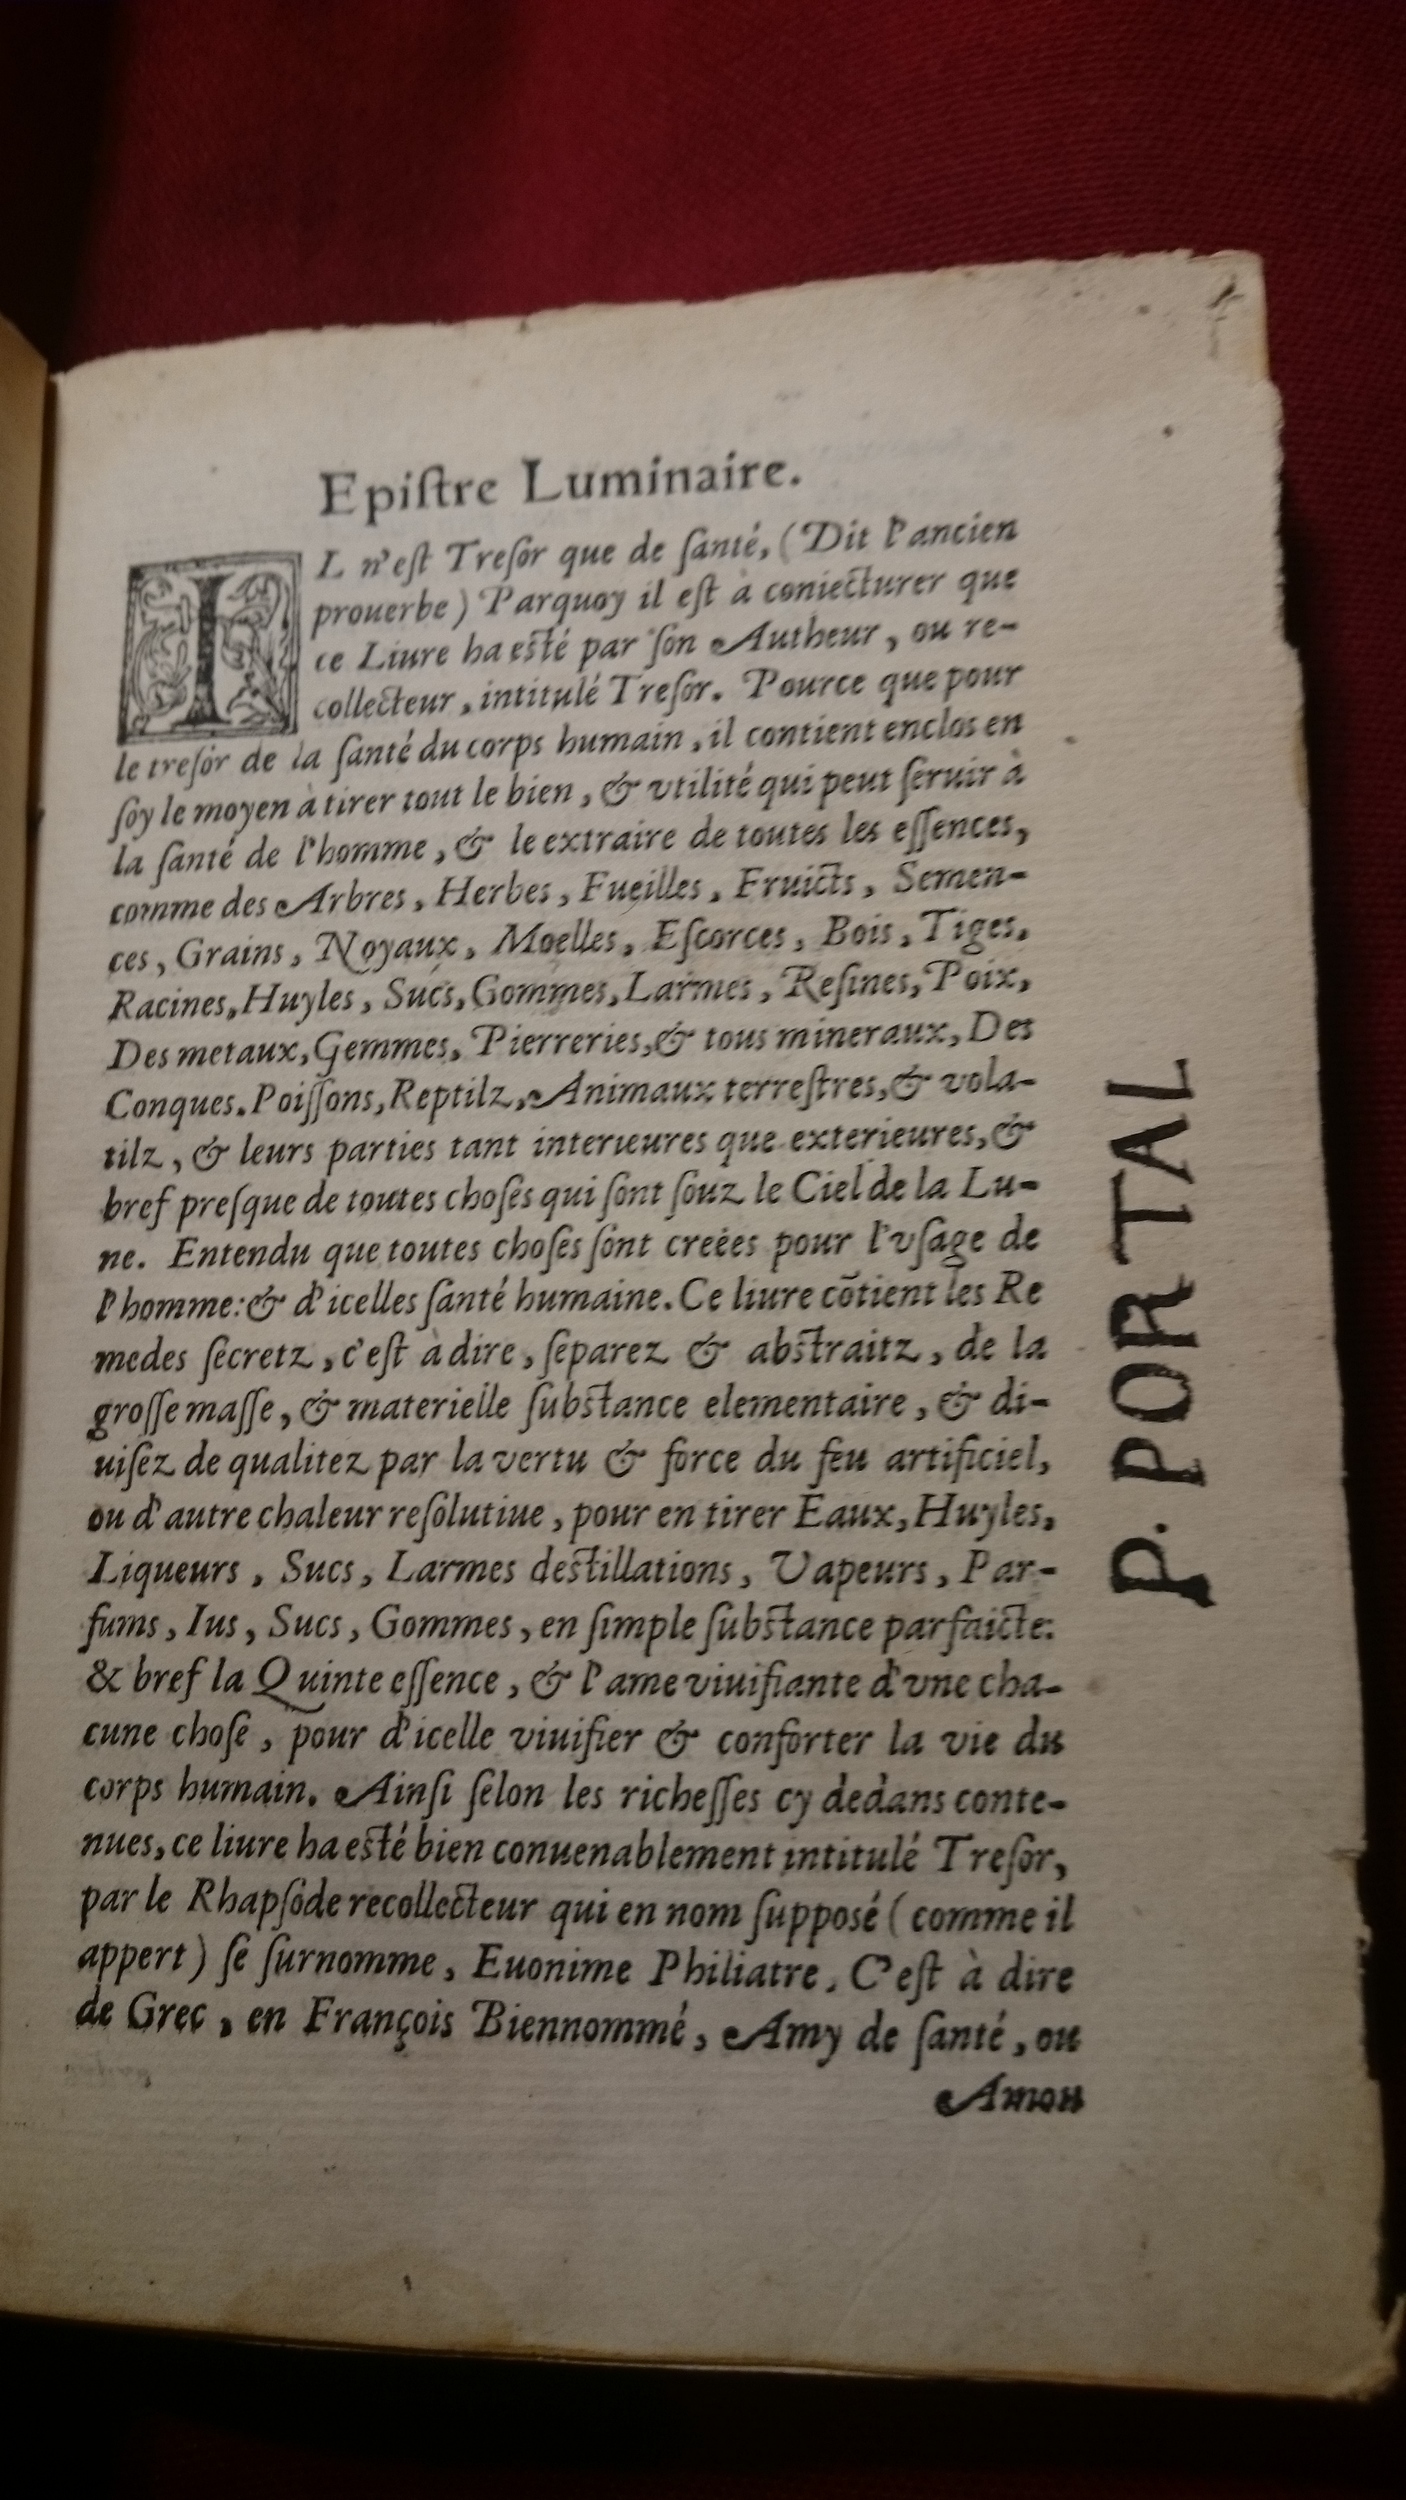 Epiſtre Luminaire.
IL n'eſt Treſor que de ſanté, (Dit l'ancien
prouerbe) Parquoy il eſt à coniecturer que
ce Liure ha eſté par ſon Autheur, ou re-
collecteur, intitulé Treſor. Pource que pour
le treſor de la ſanté du corps humain, il contient enclos en
ſoy le moyen à tirer tout le bien, & vtilité qui peut ſeruir à
la ſanté de l'homme, & le extraire de toutes les eſſences,
comme des Arbres, Herbes, Fueilles, Fruicts, Semen-
ces, Grains, Noyaux, Moelles, Eſcorces, Bois, Tiges,
Racines, Huyles, Sucs, Gommes, Larmes, Reſines, Poix,
Des metaux, Gemmes, Pierreries, & tous mineraux, Des
Conques. Poiſſons, Reptilz, Animaux terreſtres, & vola-
tilz, & leurs parties tant interieures que exterieures, &
bref preſque de toutes choſes qui ſont ſouz le Ciel de la Lu-
ne. Entendu que toutes choſes ſont creées pour l'vſage de
l'homme: & d'icelles ſanté humaine. Ce liure cõtient les Re
medes ſecretz, c'eſt à dire, ſeparez & abſtraitz, de la
groſſe maſſe, & materielle ſubſtance elementaire, & di-
uiſez de qualitez par la vertu & force du feu artificiel,
ou d'autre chaleur reſolutiue, pour en tirer Eaux, Huyles,
Liqueurs, Sucs, Larmes deſtillations, Vapeurs, Par-
fums, Ius, Sucs, Gommes, en ſimple ſubſtance parfaicte:
& bref la Quinte eſſence, & l'ame viuifiante d'vne cha-
cune choſe, pour d'icelle viuifier & conforter la vie du
corps humain. Ainſi ſelon les richeſſes cy dedans conte-
nues, ce liure ha eſté bien conuenablement intitulé Treſor,
par le Rhapſode recollecteur qui en nom ſuppoſé (comme il
appert) ſe ſurnomme, Euonime Philiatre. C'eſt à dire
de Grec, en François Biennommé, Amy de ſanté, ou
Amou
P. PORTAL